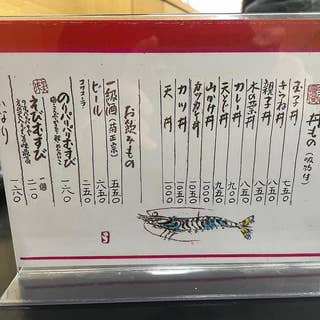 丼もの（吸物付）
玉子丼 七五〇
きつね丼 八五〇
親子丼 八五〇
木の葉丼 八五〇
カレー丼 九〇〇
天とじ丼 九〇〇
山かけ丼 一〇〇〇
カツカレー丼 一〇〇〇
カツ丼 一〇〇〇
天丼 一〇〇〇
お飲みもの
一級酒（菊正宗） 五五〇
ビール 六五〇
コカコーラ 二五〇
のりパリパリむすび 一六〇
えびむすび 一個 二一〇
いなり 一六〇